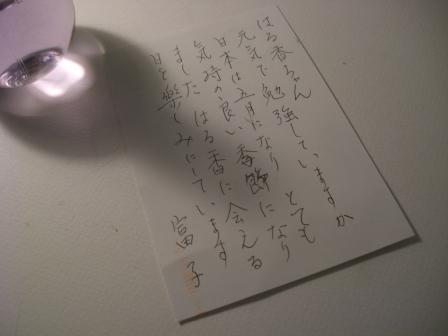 はる香ちゃん
元気で勉強していますか
日本は五月になり とても
気時の良い季節になり
ました はる香に会える
日を楽しみにしています
富子